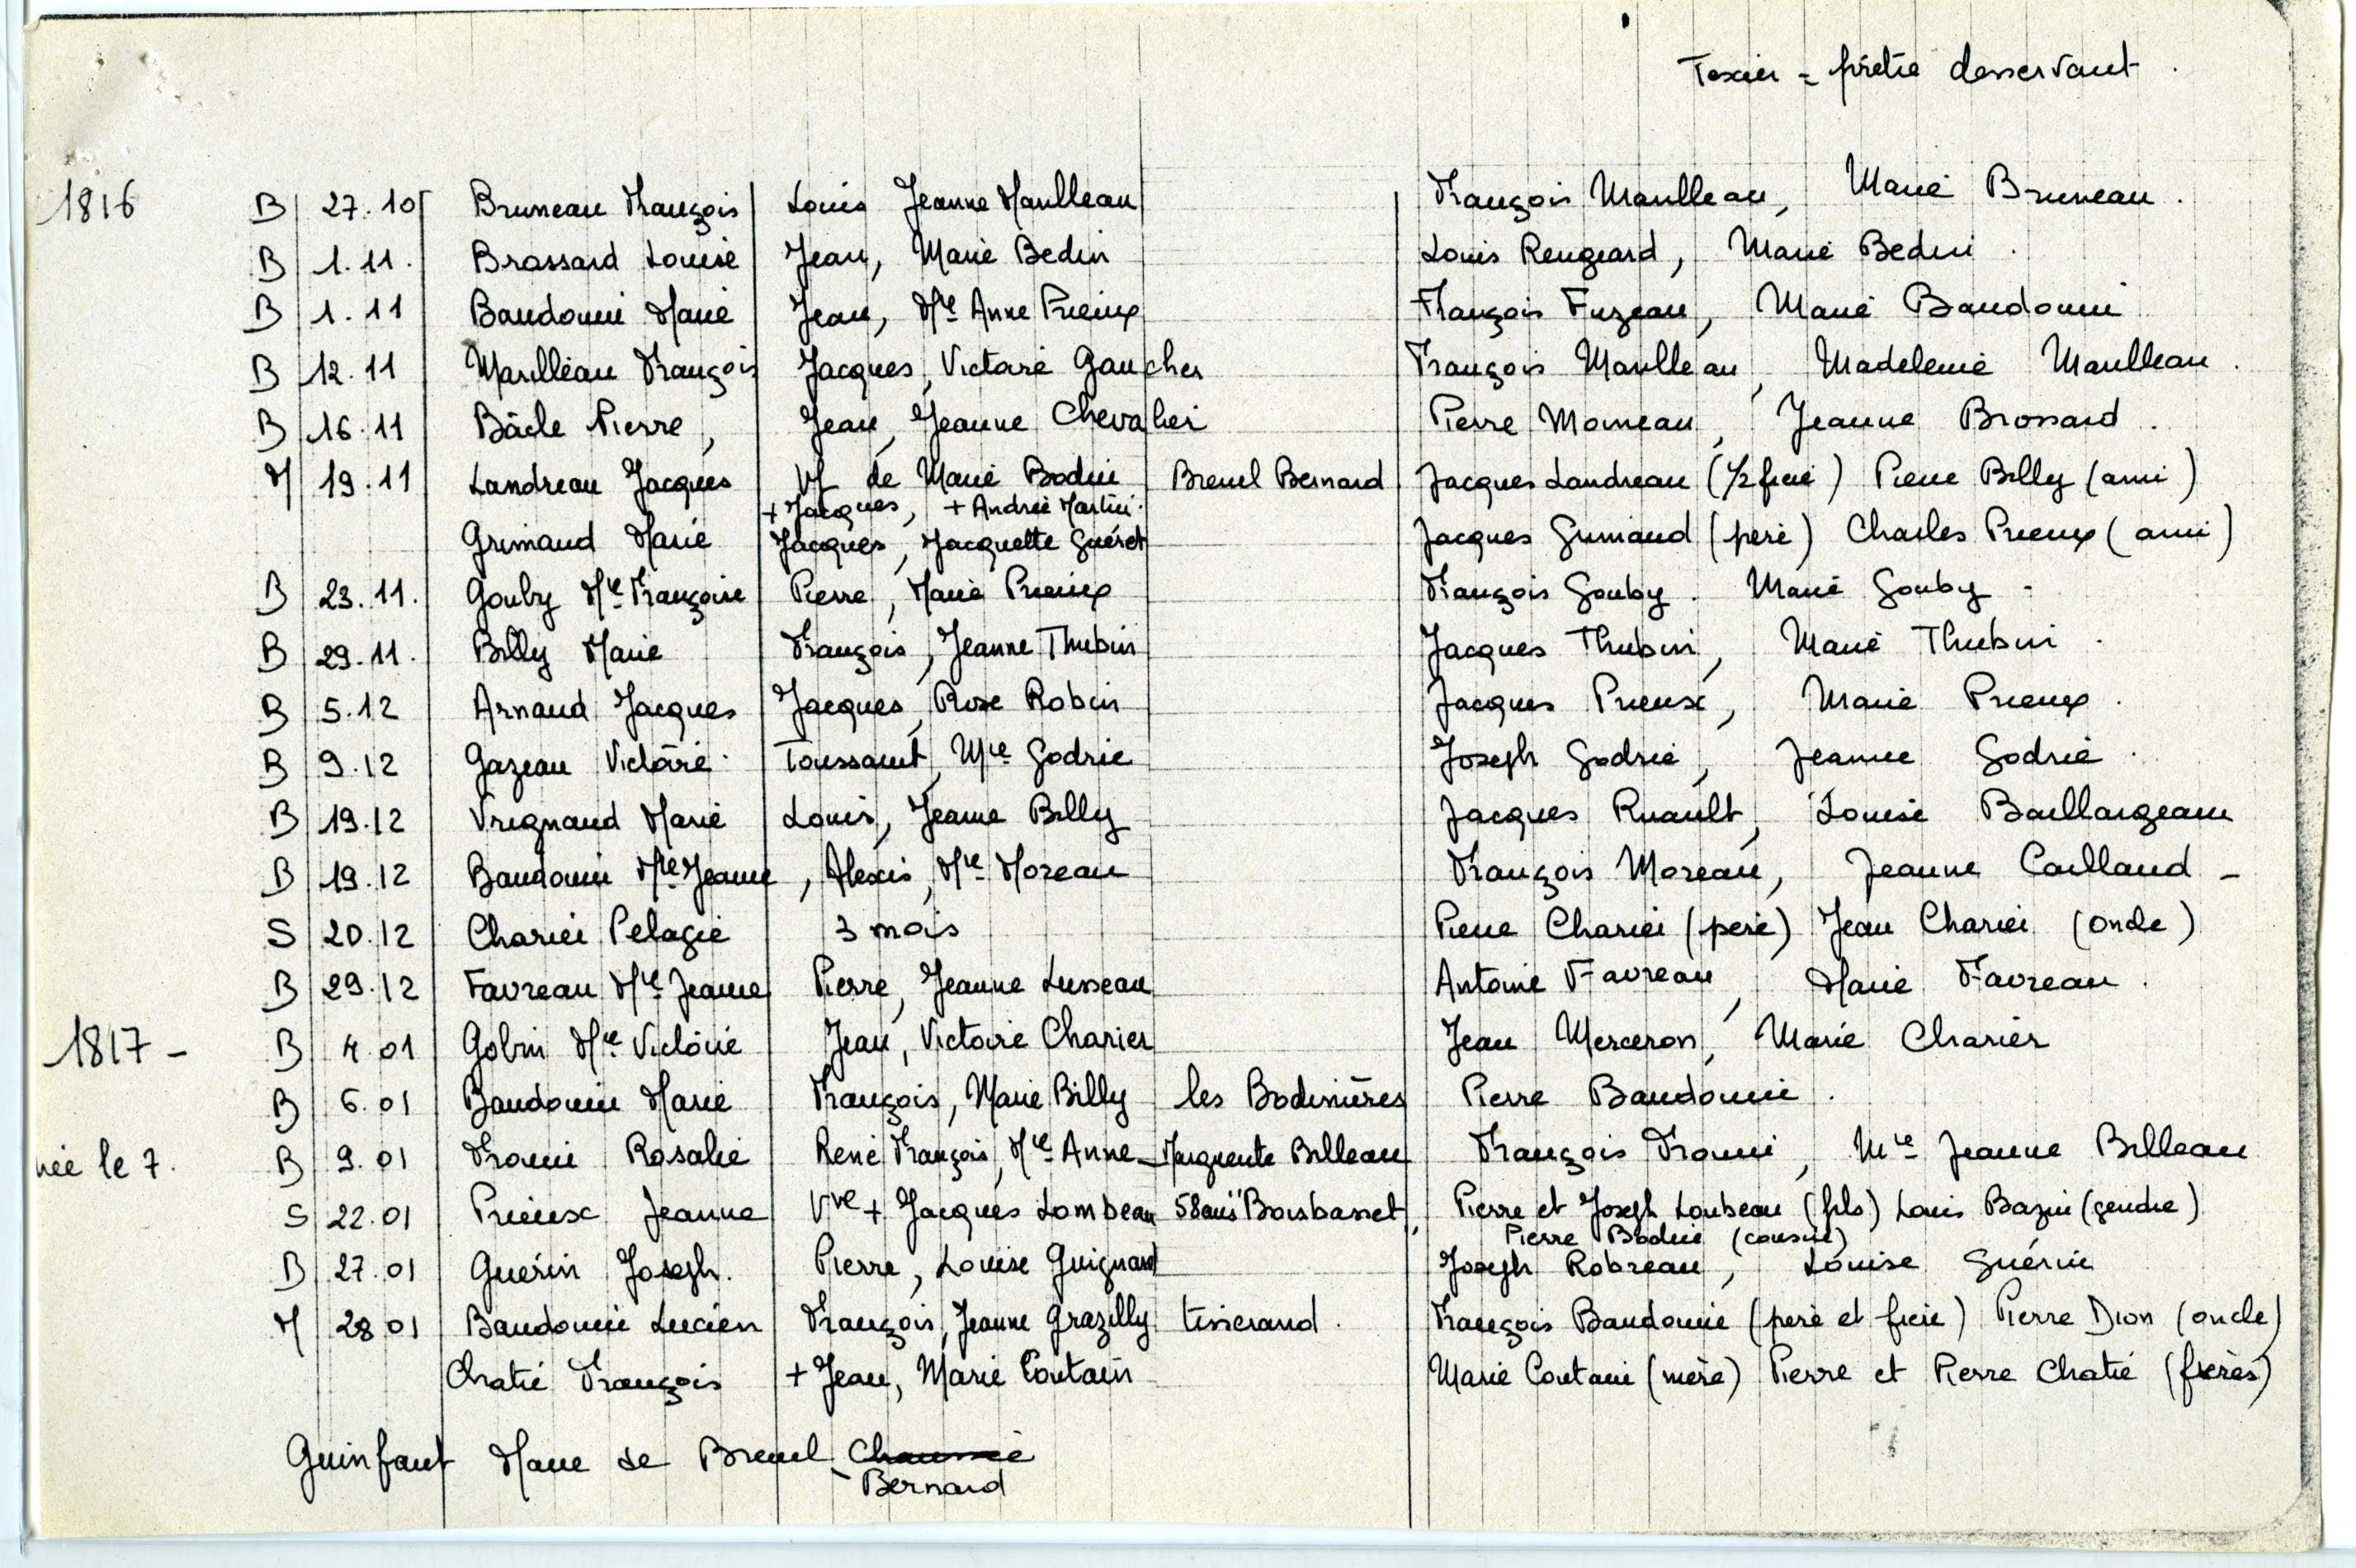 Texier = prêtre desservant.
1816 B 27.10 Bruneau François Louis Jeanne Marilleau François Marilleau, Marie Bruneau.
B 1.11. Brossard Louise Jean, Marie Bedin Louis Rengeard, Marie Bedin.
B 1.11 Baudouin Marie Jean, Mie Anne Prieux François Fuzeau, Marie Baudouin
B 12.11 Marilleau François Jacques, Victoire Gaucher François Marilleau, Madeleine Marilleau.
B 16.11 Bâcle Pierre, Jean, Jeanne Chevalier Pierre Moineau, Jeanne Brossard.
M 19.11 Landreau Jacques Vf de Marie Bodin Breuil Bernard Jacques Landreau (1/2 frère) Pierre Billy (ami)
+ Jacques, + Andrée Martin.
Grimaud Marie Jacques, Jacquette Guéret Jacques Grimaud (père) Charles Prieux (ami)
B 23.11. Gouby Mie Françoise Pierre, Marie Prieux François Gouby. Marie Gouby -
B 29.11. Billy Marie François, Jeanne Thubin Jacques Thubin, Marie Thubin.
B 5.12 Arnaud Jacques Jacques, Rose Robin Jacques Prieux, Marie Prieux.
B 9.12 Gazeau Victoire Toussaint, Mie Godrie Joseph Godrie, Jeanne Godrie.
B 19.12 Vrignaud Marie Louis, Jeanne Billy Jacques Ruault, Louise Baillargeau
B 19.12 Baudouin Mie Jeanne, Alexis, Mie Moreau François Moreau, Jeanne Caillaud -
S 20.12 Charier Pelagie 3 mois Pierre Charier (père) Jean Charier (oncle)
B 29.12 Favreau Mie Jeanne Pierre, Jeanne Lusseau Antoine Favreau, Marie Favreau.
1817 - B 4.01 Gobin Mie Victoire Jean, Victoire Charier Jean Merceron, Marie Charier
B 6.01 Baudouin Marie François, Marie Billy les Bodinières Pierre Baudouin.
née le 7. B 9.01 Drouin Rosalie René François, Mie Anne Marguerite Billeau François Drouin, Mie Jeanne Billeau
S 22.01 Prieux Jeanne Vve + Jacques Loubeau 58 ans Boisbasset, Pierre et Joseph Loubeau (fils) Louis Bazin (gendre)
Pierre Bodin (cousin)
B 27.01 Guérin Joseph. Pierre, Louise Guignard Joseph Robreau, Louise Guérin
M 28 01 Baudouin Lucien François, Jeanne Grazilly tisserand. François Baudouin (père et frère) Pierre Dion (oncle)
Chatié François + Jean, Marie Coutain Marie Coutain (mère) Pierre et Pierre Chatié (frères)
Guinfaut Marie de Breuil Chaussée
Bernard